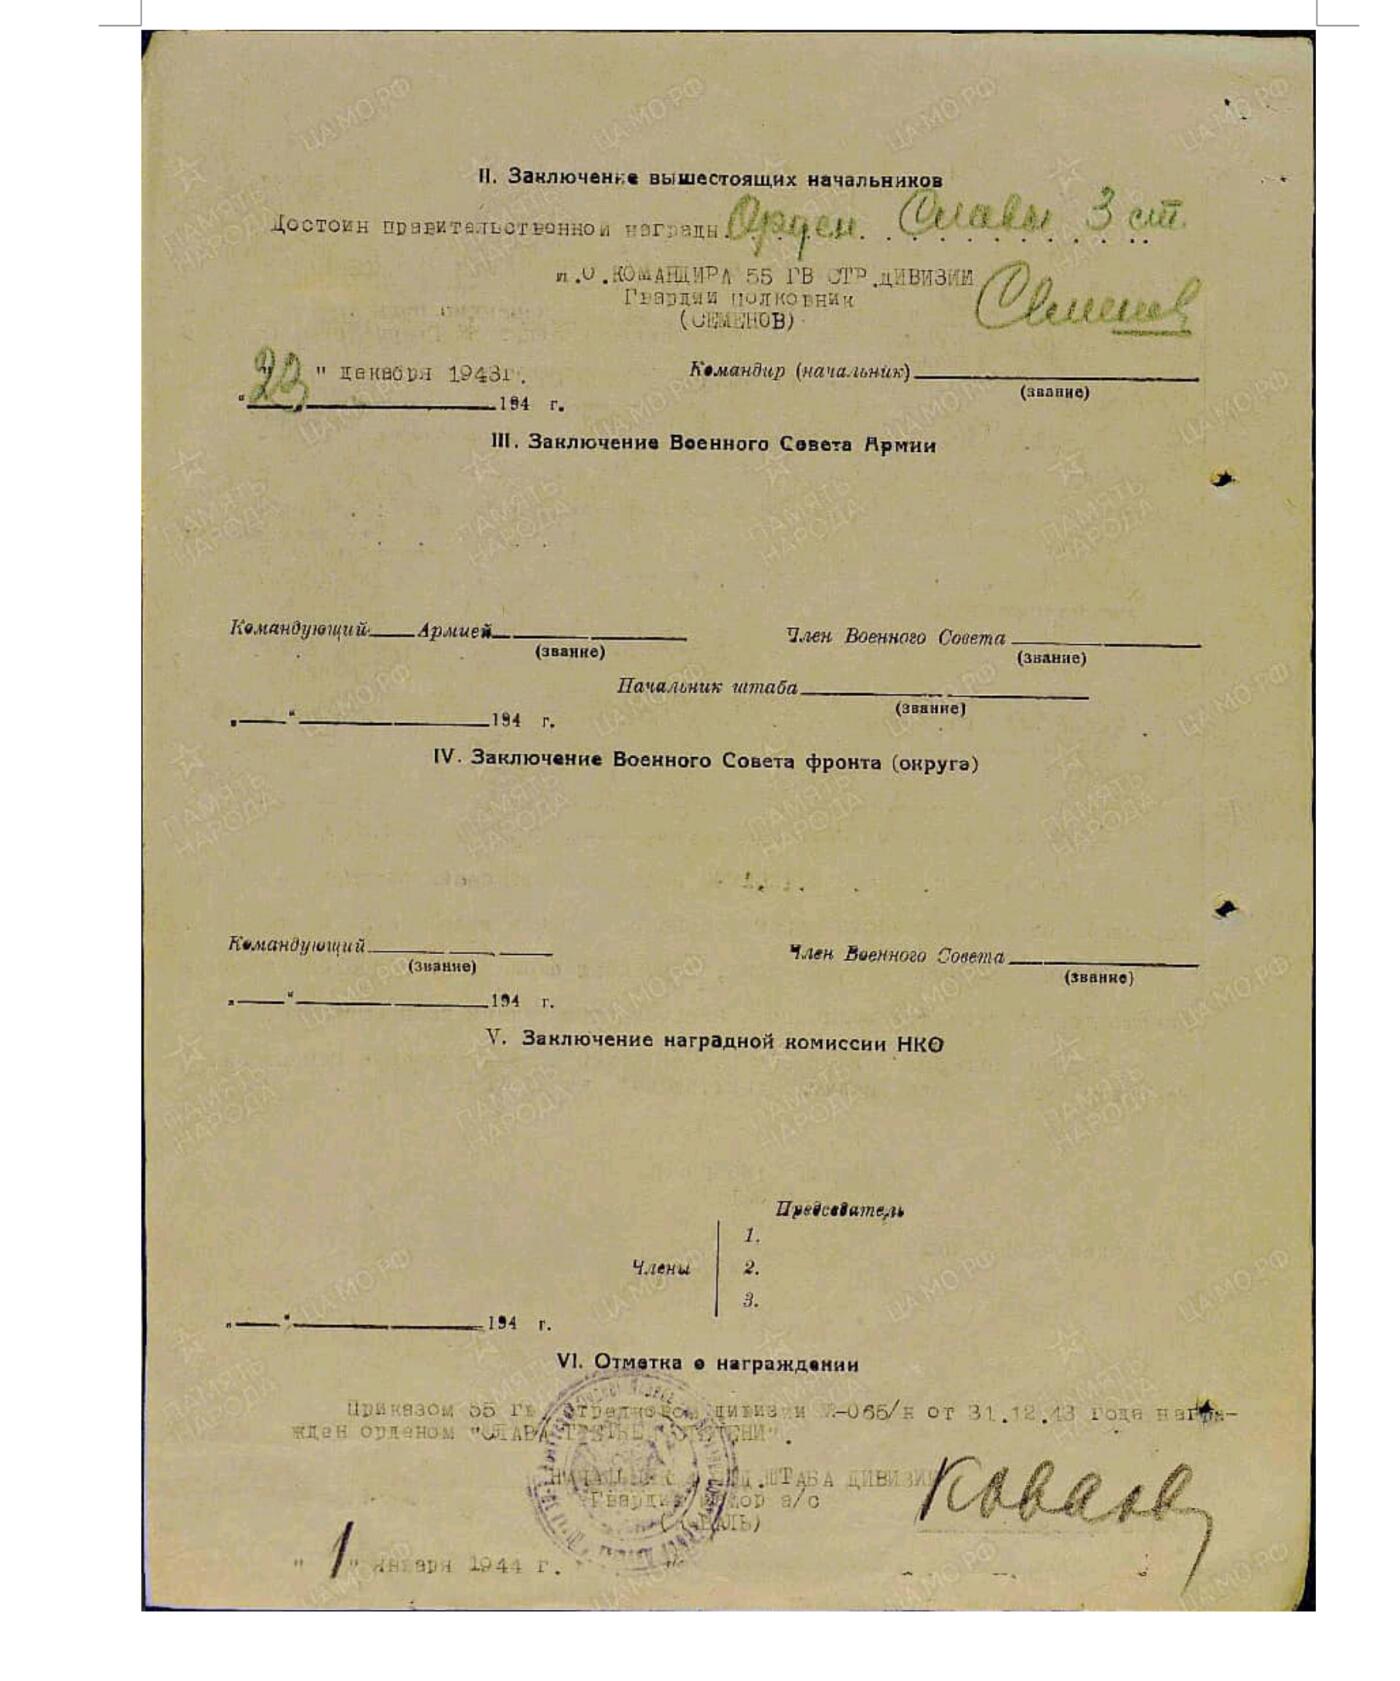 II. Заключение вышестоящих начальников
Достоин правительственной награды Орден Славы 3 ст.
И.О.КОМАНДИРА 55 ГВ СТР.ДИВИЗИИ
Гвардии полковник
(СЕМЕНОВ)
Семенов
"23" декабря 1943г.
Командир (начальник)
(звание)
194 г.
III. Заключение Военного Совета Армии
Командующий Армией
(звание)
Член Военного Совета
(звание)
Начальник штаба
(звание)
194 г.
IV. Заключение Военного Совета фронта (округа)
Командующий
(звание)
Член Военного Совета
(звание)
194 г.
V. Заключение наградной комиссии НКО
Председатель
Члены
1.
2.
3.
194 г.
VI. Отметка о награждении
Приказом 55 гв. стрелковой дивизии №-065/н от 31.12.43 года награ-
жден орденом "СЛАВА ТРЕТЬЕЙ СТЕПЕНИ".
ШТАБА ДИВИЗИИ
Гвардии майор а/с
(КОВАЛЬ)
Коваль
"1" января 1944 г.
ЦАМО.РФ
ПАМЯТЬ НАРОДА